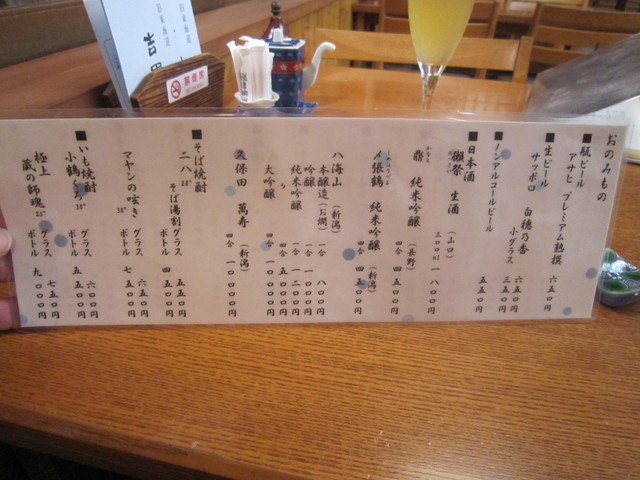 おのみもの
■瓶ビール
アサヒ プレミアム熟撰 六五〇円
■生ビール
サッポロ 白穂乃香 六五〇円
小グラス 三五〇円
■ノンアルコールビール 五五〇円
■日本酒
獺祭 生酒 (山口) 三〇〇ml 一八〇〇円
鼎 純米吟醸 (長野) 四合 五〇〇〇円
〆張鶴 純米吟醸 (新潟) 四合 五〇〇〇円
八海山 (新潟)
本醸造(お燗) 一合 八〇〇円
吟醸 一合 一〇〇〇円
純米吟醸 一合 一二〇〇円
〃 四合 五〇〇〇円
大吟醸 四合 一〇〇〇〇円
久保田 萬寿 (新潟) 四合 一〇〇〇〇円
■そば焼酎
二八 そば湯割グラス 五五〇円
ボトル 四五〇〇円
マヤンの呟き 38° グラス 六五〇円
ボトル 七五〇〇円
■いも焼酎
小鶴くろ グラス 六〇〇円
ボトル 五五〇〇円
極上 蔵の師魂 25° グラス 七五〇円
ボトル 九〇〇〇円
禁煙席